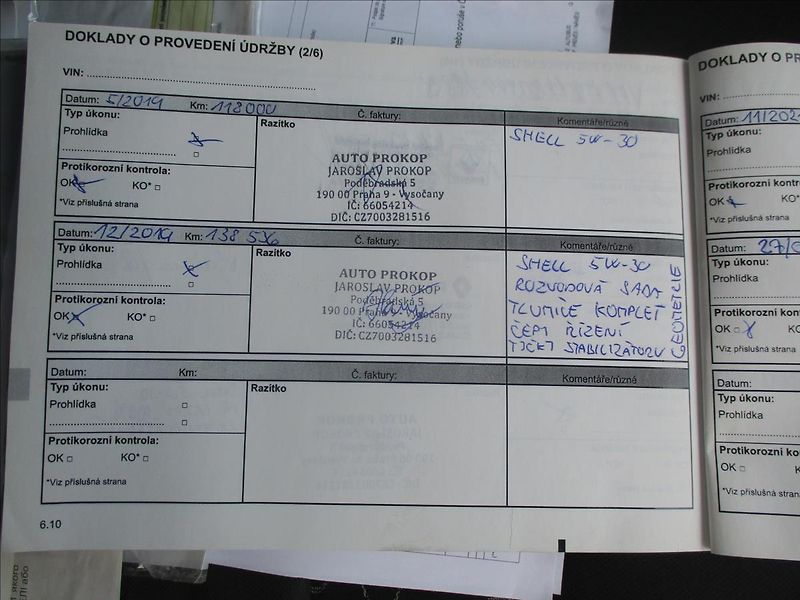 DOKLADY O PROVEDENÍ ÚDRŽBY (2/6)
VIN:
Datum: 5/2019 Km: 118 000 Č. faktury: Komentáře/různé
Typ úkonu:
Prohlídka
Protikorozní kontrola:
OK KO*
*Viz příslušná strana
Razítko
AUTO PROKOP
JAROSLAV PROKOP
Poděbradská 5
190 00 Praha 9 - Vysočany
IČ: 66054214
DIČ: CZ7003281516
SHELL 5W-30
Datum: 12/2019 Km: 138 536 Č. faktury: Komentáře/různé
Typ úkonu:
Prohlídka
Protikorozní kontrola:
OK KO*
*Viz příslušná strana
Razítko
AUTO PROKOP
JAROSLAV PROKOP
Poděbradská 5
190 00 Praha 9 - Vysočany
IČ: 66054214
DIČ: CZ7003281516
SHELL 5W-30
ROZVODOVÁ SADA
TLUMIČE KOMPLET
ČEPY ŘÍZENÍ
TYČKY STABILIZÁTORU
GEOMETRIE
Datum: Km: Č. faktury: Komentáře/různé
Typ úkonu:
Prohlídka
Protikorozní kontrola:
OK KO*
*Viz příslušná strana
Razítko
6.10
DOKLADY O
VIN:
Datum:
Typ úkonu:
Prohlídka
Protikorozní
OK KO
*Viz příslušná strana
Datum:
Typ úkonu:
Prohlídka
Protikorozní
OK
*Viz příslušná strana
Datum:
Typ úkonu:
Prohlídka
Protikorozní
OK
*Viz příslušná strana